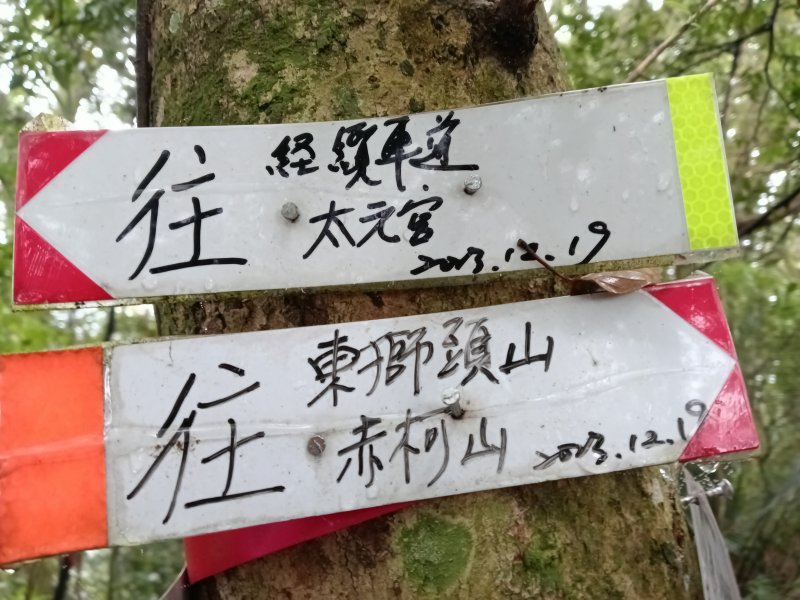 往
経纜車道
太元宮
2023.12.19
往
東獅頭山
赤柯山
2023.12.19